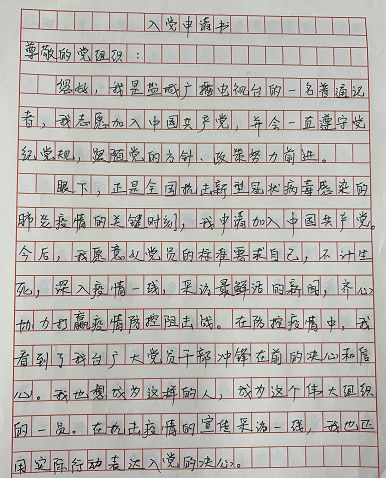 入党申请书
尊敬的党组织：
您好，我是盐城广播电视台的一名普通记
者，我志愿加入中国共产党，并会一直遵守党
纪党规，跟随党的方针、政策努力前进。
眼下，正是全国抗击新型冠状病毒感染的
肺炎疫情的关键时刻，我申请加入中国共产党。
今后，我愿意以党员的标准要求自己，不计生
死，深入疫情一线，采访最鲜活的新闻，齐心
协力打赢疫情防控阻击战。在防控疫情中，我
看到了我台广大党员干部冲锋在前的决心和信
心。我也想成为这样的人，成为这个伟大组织
的一员。在抗击疫情的宣传采访一线，我也
用实际行动表达入党的决心。